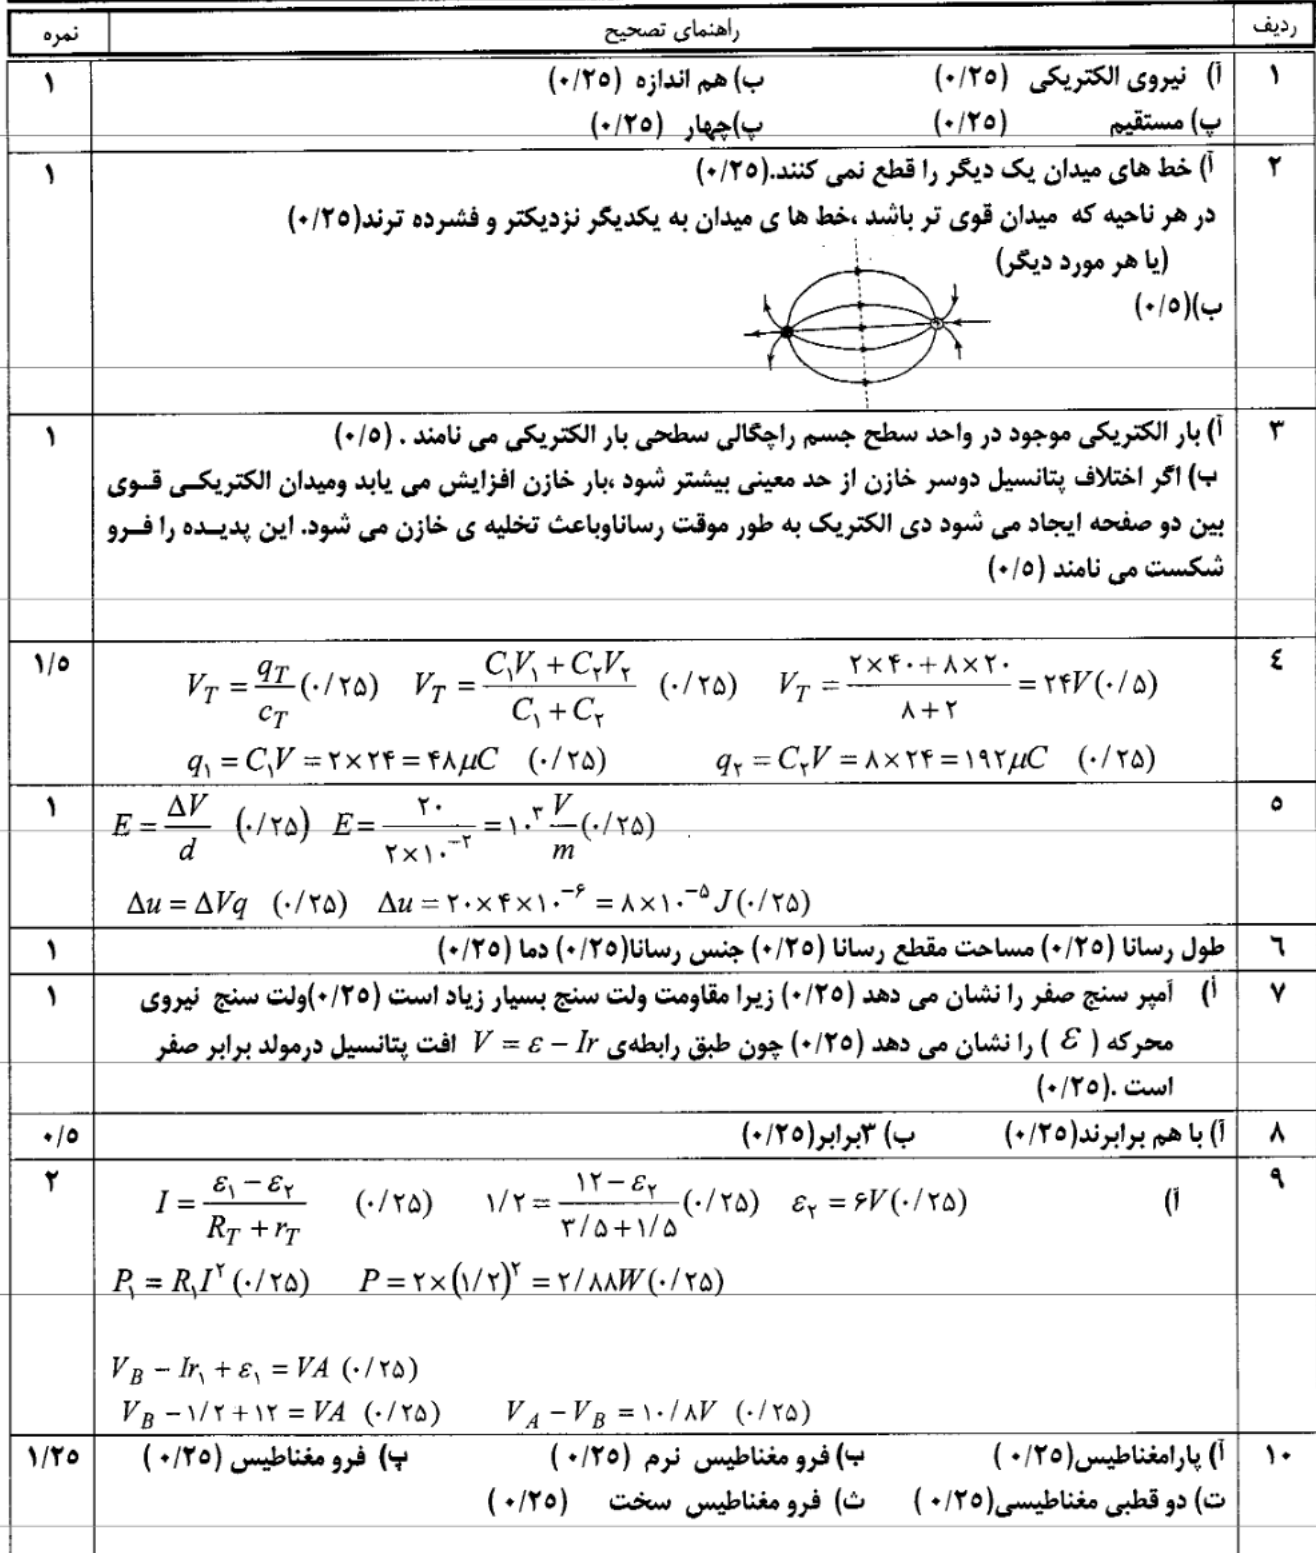 ردیف راهنمای تصحیح نمره
۱ آ) نیروی الکتریکی (۰/۲۵) ب) هم اندازه (۰/۲۵) ۱
پ) مستقیم (۰/۲۵) پ)چهار (۰/۲۵)
۲ آ) خط های میدان یک دیگر را قطع نمی کنند.(۰/۲۵) ۱
در هر ناحیه که میدان قوی تر باشد ،خط ها ی میدان به یکدیگر نزدیکتر و فشرده ترند(۰/۲۵)
(یا هر مورد دیگر)
ب)(۰/۵)
۳ آ) بار الکتریکی موجود در واحد سطح جسم راچگالی سطحی بار الکتریکی می نامند . (۰/۵) ۱
ب) اگر اختلاف پتانسیل دوسر خازن از حد معینی بیشتر شود ،بار خازن افزایش می یابد ومیدان الکتریکی قوی
بین دو صفحه ایجاد می شود دی الکتریک به طور موقت رساناوباعث تخلیه ی خازن می شود. این پدیده را فرو
شکست می نامند (۰/۵)
۴ V_T = q_T / c_T (۰/۲۵) V_T = (C_۱V_۱ + C_۲V_۲) / (C_۱ + C_۲) (۰/۲۵) V_T = (۲×۴۰+۸×۲۰) / (۸+۲) = ۲۴V(۰/۵) ۱/۵
q_۱ = C_۱V = ۲×۲۴ = ۴۸μC (۰/۲۵) q_۲ = C_۲V = ۸×۲۴ = ۱۹۲μC (۰/۲۵)
۵ E = ΔV / d (۰/۲۵) E = ۲۰ / (۲×۱۰^-۲) = ۱۰^۳ V/m (۰/۲۵) ۱
Δu = ΔVq (۰/۲۵) Δu = ۲۰×۴×۱۰^-۶ = ۸×۱۰^-۵ J(۰/۲۵)
۶ طول رسانا (۰/۲۵) مساحت مقطع رسانا (۰/۲۵) جنس رسانا(۰/۲۵) دما (۰/۲۵) ۱
۷ أ) آمپر سنج صفر را نشان می دهد (۰/۲۵) زیرا مقاومت ولت سنج بسیار زیاد است (۰/۲۵)ولت سنج نیروی ۱
محرکه ( ε ) را نشان می دهد (۰/۲۵) چون طبق رابطه‌ی V = ε − Ir افت پتانسیل درمولد برابر صفر
است .(۰/۲۵)
۸ آ) با هم برابرند(۰/۲۵) ب) ۳برابر(۰/۲۵) ۰/۵
۹ آ) I = (ε_۱ − ε_۲) / (R_T + r_T) (۰/۲۵) ۱/۲ = (۱۲ − ε_۲) / (۳/۵+۱/۵) (۰/۲۵) ε_۲ = ۶V(۰/۲۵) ۲
P_۱ = R_۱I^۲ (۰/۲۵) P = ۲×(۱/۲)^۲ = ۲/۸۸W(۰/۲۵)
V_B − Ir_۱ + ε_۱ = VA (۰/۲۵)
V_B − ۱/۲ + ۱۲ = VA (۰/۲۵) V_A − V_B = ۱۰/۸V (۰/۲۵)
۱۰ آ) پارامغناطیس(۰/۲۵) ب) فرو مغناطیس نرم (۰/۲۵) پ) فرو مغناطیس (۰/۲۵) ۱/۲۵
ت) دو قطبی مغناطیسی(۰/۲۵) ث) فرو مغناطیس سخت (۰/۲۵)